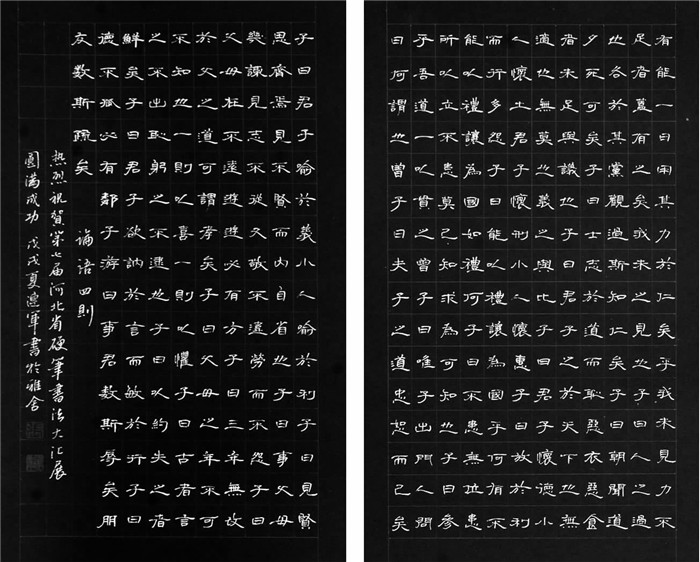 有能一日用其力於仁矣乎我未見力不
足者蓋有之矣我未之見也子曰人之過
也各於其黨觀過斯知仁矣子曰朝聞道
夕死可矣子曰士志於道而恥惡衣惡食
者未足與議也子曰君子之於天下也無
適也無莫也義之與比子曰君子懷德小
人懷土君子懷刑小人懷惠子曰放於利
而行多怨子曰能以禮讓為國乎何有不
能以禮讓為國如禮何子曰不患無位患
所以立不患莫己知求為可知也子曰參
乎吾道一以貫之曾子曰唯子出門人問
曰何謂也曾子曰夫子之道忠恕而已矣
子曰君子喻於義小人喻於利子曰見賢
思齊焉見不賢而內自省也子曰事父母
幾諫見志不從又敬不違勞而不怨子曰
父母在不遠遊遊必有方子曰三年無改
於父之道可謂孝矣子曰父母之年不可
不知也一則以喜一則以懼子曰古者言
之不出恥躬之不逮也子曰以約失之者
鮮矣子曰君子欲訥於言而敏於行子曰
德不孤必有鄰子游曰事君數斯辱矣朋
友數斯疏矣
論語四則
熱烈祝賀第七届河北省硬筆書法大汇展
圓滿成功 戊戌夏軍書於雅舍